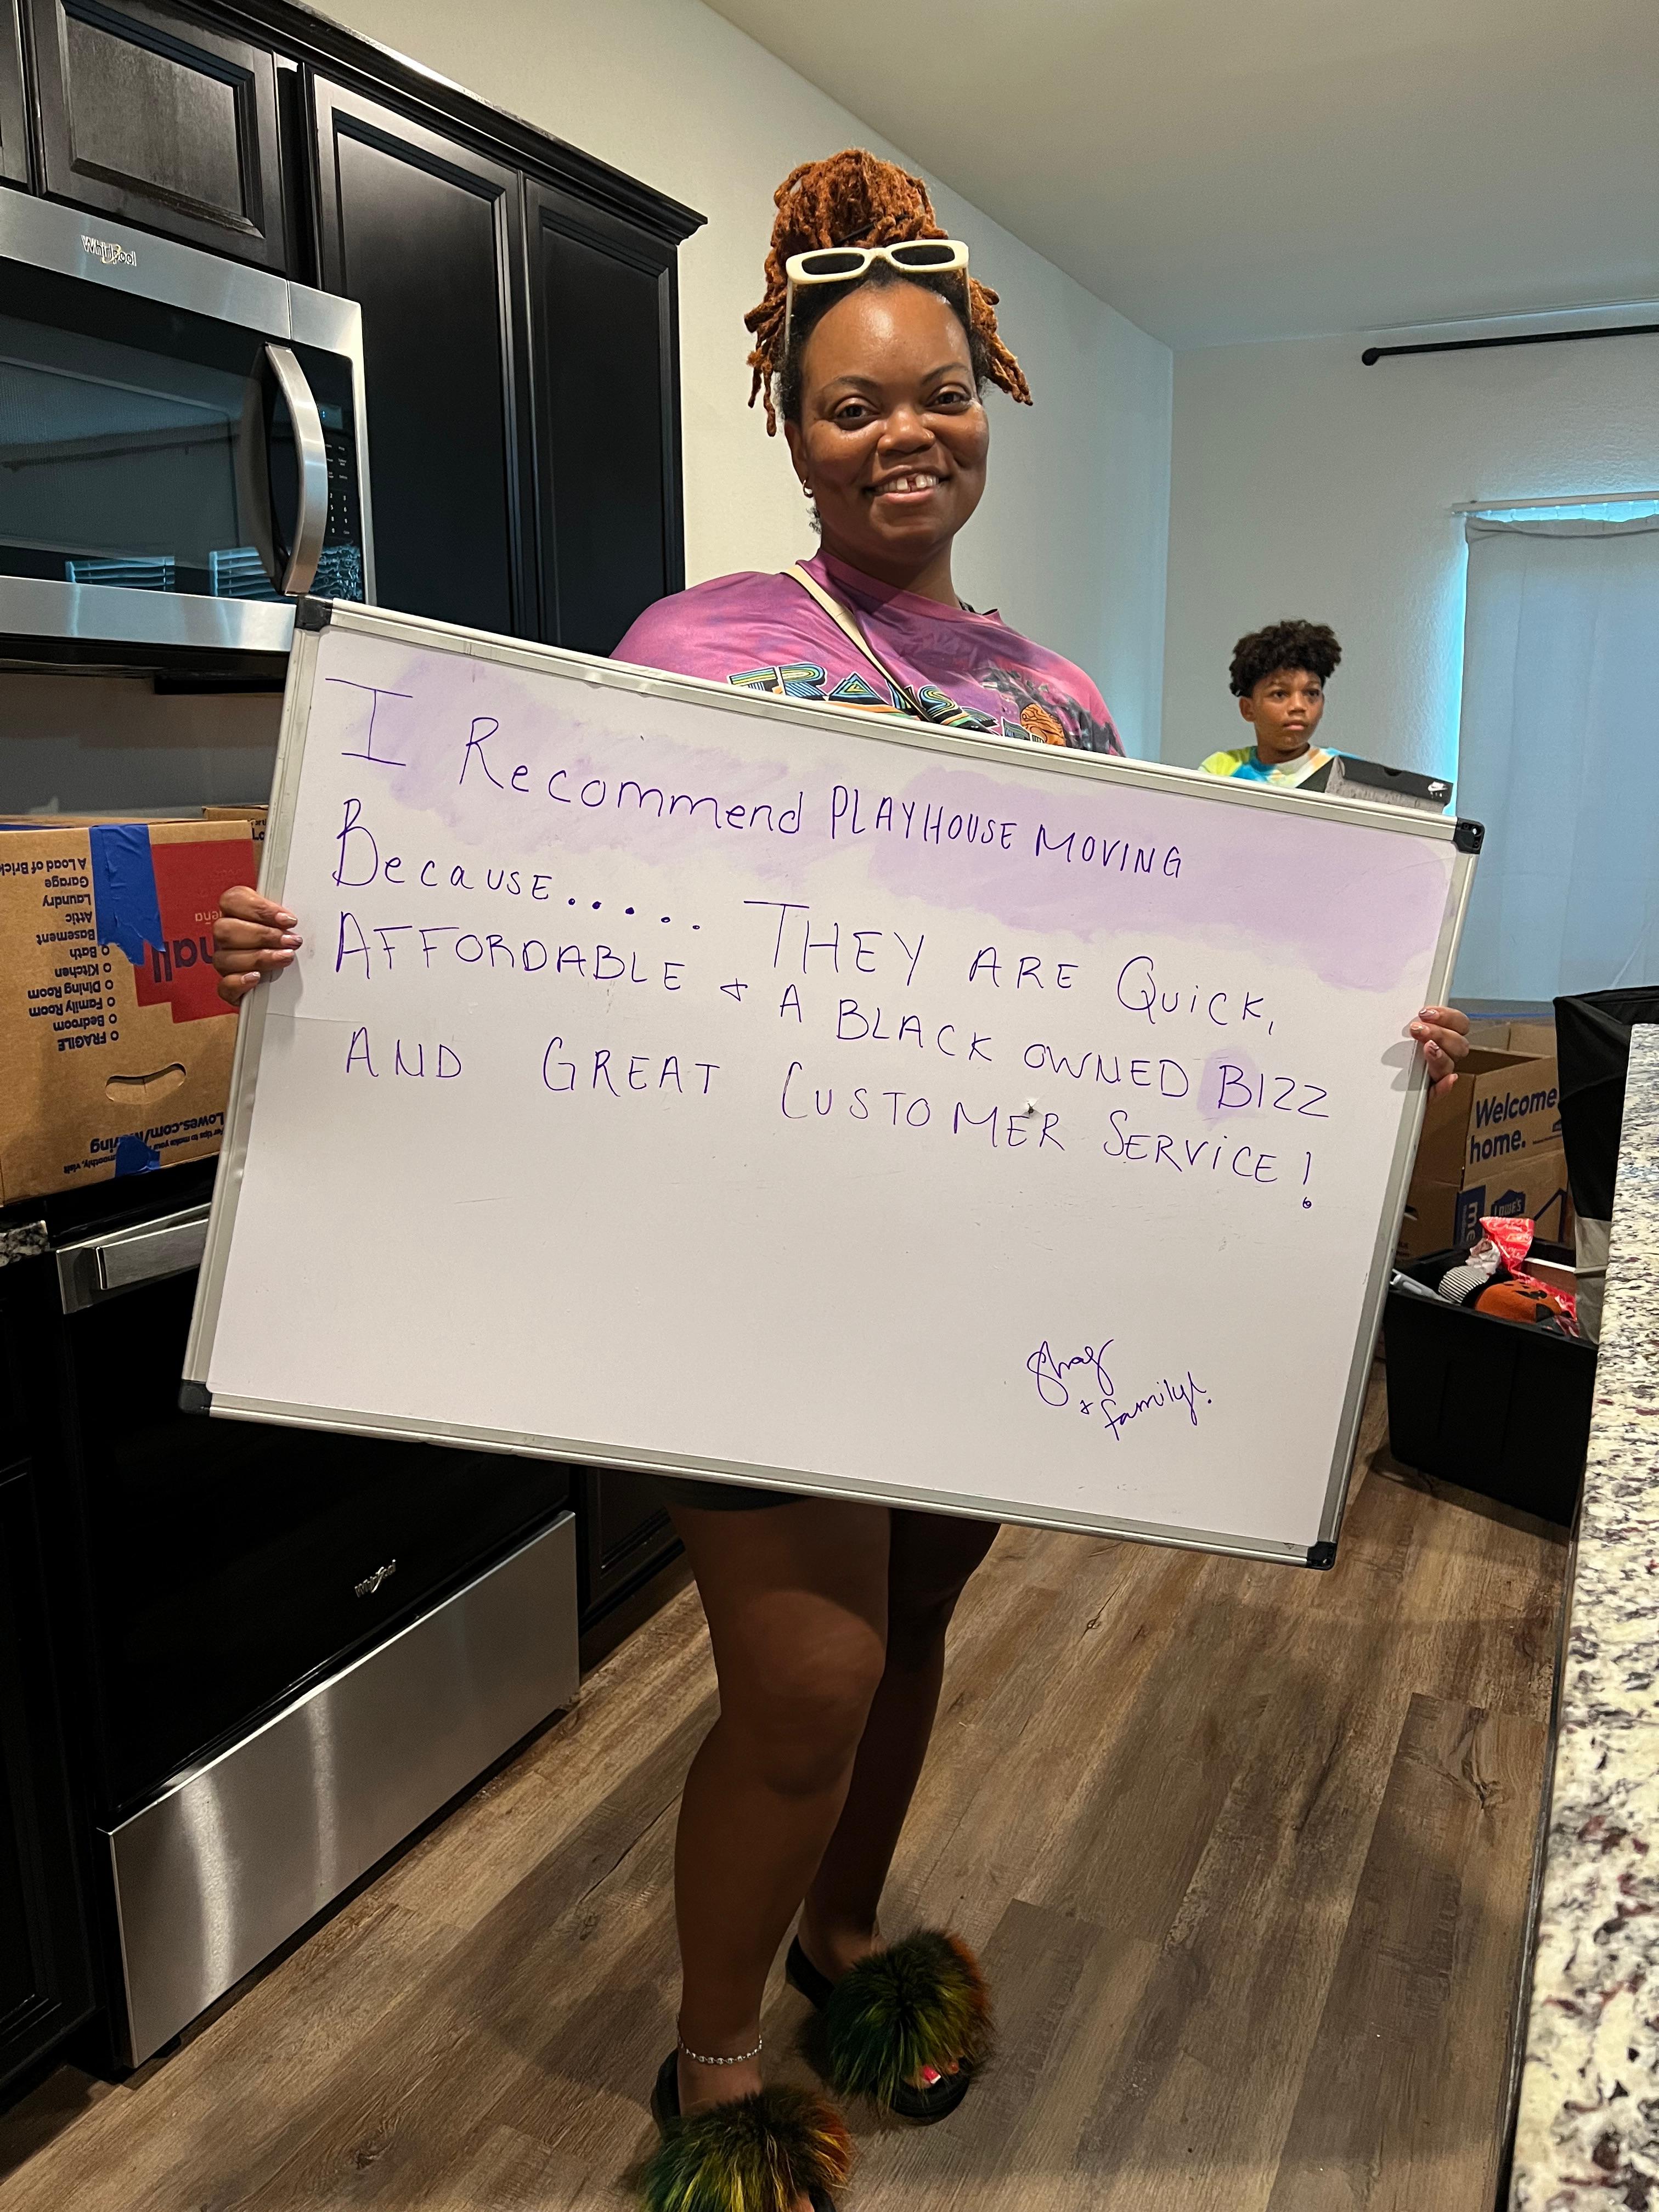 Whirlpool
TRAVIS
I Recommend PLAYHOUSE MOVING
Because..... THEY ARE Quick,
AFFORDABLE + A BLACK OWNED BIZZ
AND GREAT CUSTOMER SERVICE!
+ family!
A Load of Bricks
Garage
Laundry
Attic
Basement
Bath
Kitchen
Dining Room
Family Room
Bedroom
FRAGILE
Lowes.com/Moving
Welcome
home.
LOWE'S
Whirlpool